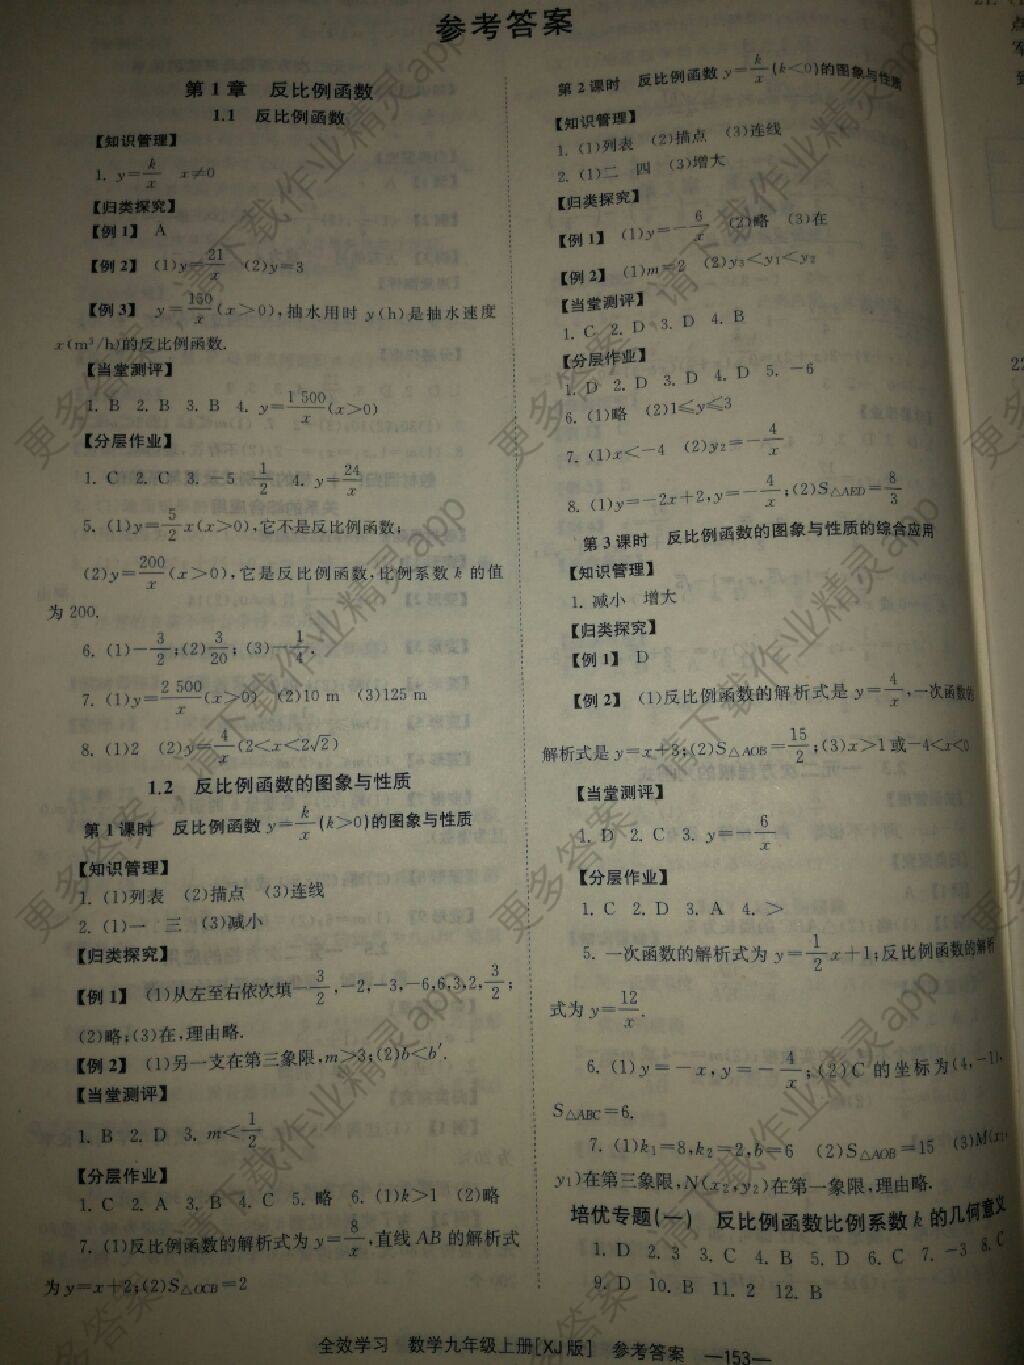 参考答案
第1章 反比例函数
1.1 反比例函数
【知识管理】
1. y=k/x x≠0
【归类探究】
【例1】 A
【例2】 (1)y=21/x (2)y=3
【例3】 y=150/x(x>0),抽水用时 y(h)是抽水速度
x(m³/h)的反比例函数.
【当堂测评】
1. B 2. B 3. B 4. y=1 500/x(x>0)
【分层作业】
1. C 2. C 3. -5 1/2 4. y=24/x
5. (1)y=5/2x(x>0),它不是反比例函数;
(2)y=200/x(x>0),它是反比例函数,比例系数 k 的值
为 200.
6. (1)-3/2;(2)3/20;(3)-1/4.
7. (1)y=2 500/x(x>0) (2)10 m (3)125 m
8. (1)2 (2)y=4/x(2<x<2√2)
1.2 反比例函数的图象与性质
第1课时 反比例函数 y=k/x(k>0)的图象与性质
【知识管理】
1. (1)列表 (2)描点 (3)连线
2. (1)一 三 (3)减小
【归类探究】
【例1】 (1)从左至右依次填-3/2,-2,-3,-6,6,3,2,3/2;
(2)略;(3)在,理由略.
【例2】 (1)另一支在第三象限,m>3;(2)b<b′.
【当堂测评】
1. B 2. D 3. m<1/2
【分层作业】
1. C 2. A 3. B 4. C 5. 略 6. (1)k>1 (2)略
7. (1)反比例函数的解析式为 y=8/x,直线 AB 的解析式
为 y=x+2;(2)S△OCB=2
第2课时 反比例函数 y=k/x(k<0)的图象与性质
【知识管理】
1. (1)列表 (2)描点 (3)连线
2. (1)二 四 (3)增大
【归类探究】
【例1】 (1)y=-6/x (2)略 (3)在
【例2】 (1)m=2 (2)y₃<y₁<y₂
【当堂测评】
1. C 2. D 3. D 4. B
【分层作业】
1. D 2. D 3. D 4. D 5. -6
6. (1)略 (2)1≤y≤3
7. (1)x<-4 (2)y₂=-4/x
8. (1)y=-2x+2,y=-4/x;(2)S△AED=8/3
第3课时 反比例函数的图象与性质的综合应用
【知识管理】
1. 减小 增大
【归类探究】
【例1】 D
【例2】 (1)反比例函数的解析式是 y=4/x,一次函数的
解析式是 y=x+3;(2)S△AOB=15/2;(3)x>1 或-4<x<0
【当堂测评】
1. D 2. C 3. y=-6/x
【分层作业】
1. C 2. D 3. A 4. >
5. 一次函数的解析式为 y=1/2x+1;反比例函数的解析
式为 y=12/x.
6. (1)y=-x,y=-4/x;(2)C 的坐标为(4,-1),
S△ABC=6.
7. (1)k₁=8,k₂=2,b=6 (2)S△AOB=15 (3)M(x₁,
y₁)在第三象限,N(x₂,y₂)在第一象限,理由略.
培优专题(一) 反比例函数比例系数 k 的几何意义
1. D 2. 3 3. C 4. B 5. D 6. C 7. -3 8. C
9. D 10. B 11. 2 12. B
全效学习 数学九年级上册[XJ版] 参考答案 —153—
更多答案 请下载作业精灵app